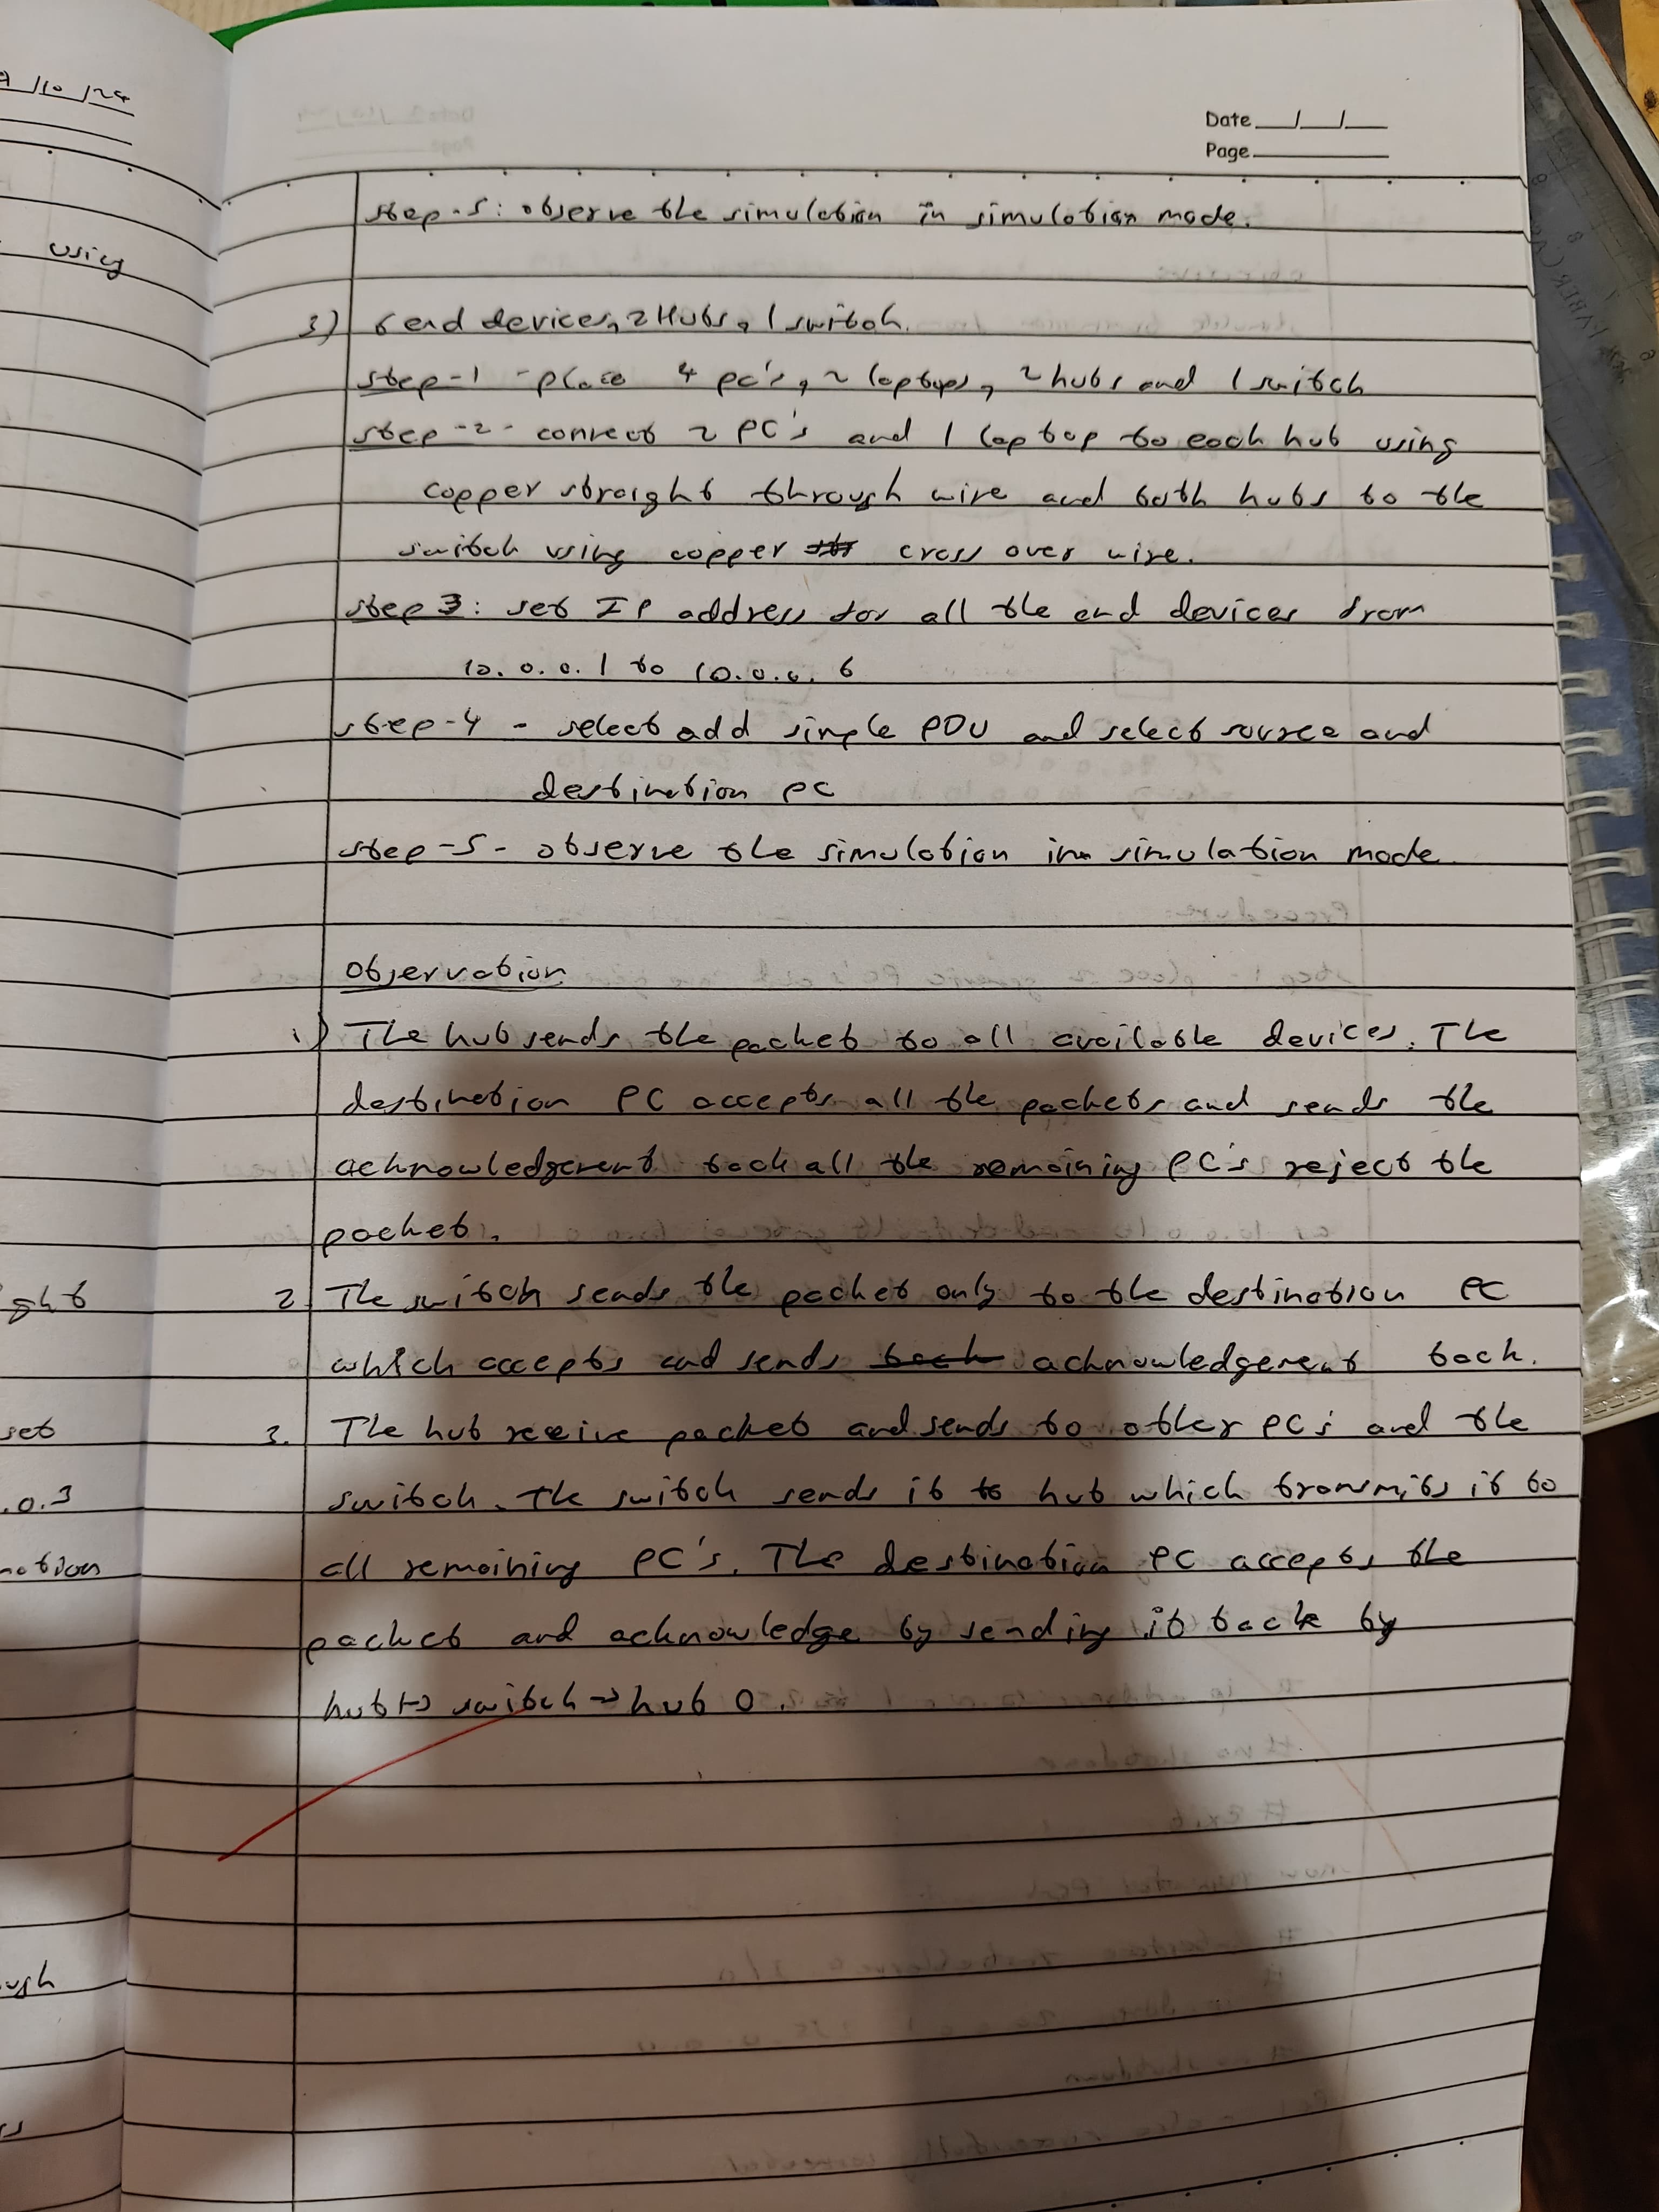 9/10/24
using
ght
set
.0.3
nation
ough
Date
Page
step-5: observe the simulation in simulation mode.
3) 6 end devices, 2 Hubs, 1 switch.
step-1 - place 4 pc's, 2 laptops, 2 hubs and 1 switch
step-2- connect 2 PC's and 1 laptop to each hub using
copper straight through wire and both hubs to the
switch using copper cross over wire.
step 3: set IP address for all the end devices from
10.0.0.1 to 10.0.0.6
step-4 - select add simple PDU and select source and
destination pc
step-5- observe the simulation in simulation mode
Observation
1) The hub sends the packet to all available devices. The
destination PC accepts all the packets and sends the
acknowledgement back all the remaining PC's reject the
packet.
2 The switch sends the packet only to the destination PC
which accepts and sends back acknowledgement back.
3. The hub receive packet and sends to other PC's and the
switch. The switch sends it to hub which transmits it to
all remaining PC's. The destination PC accepts the
packet and acknowledge by sending it back by
hub1→ switch → hub 0.